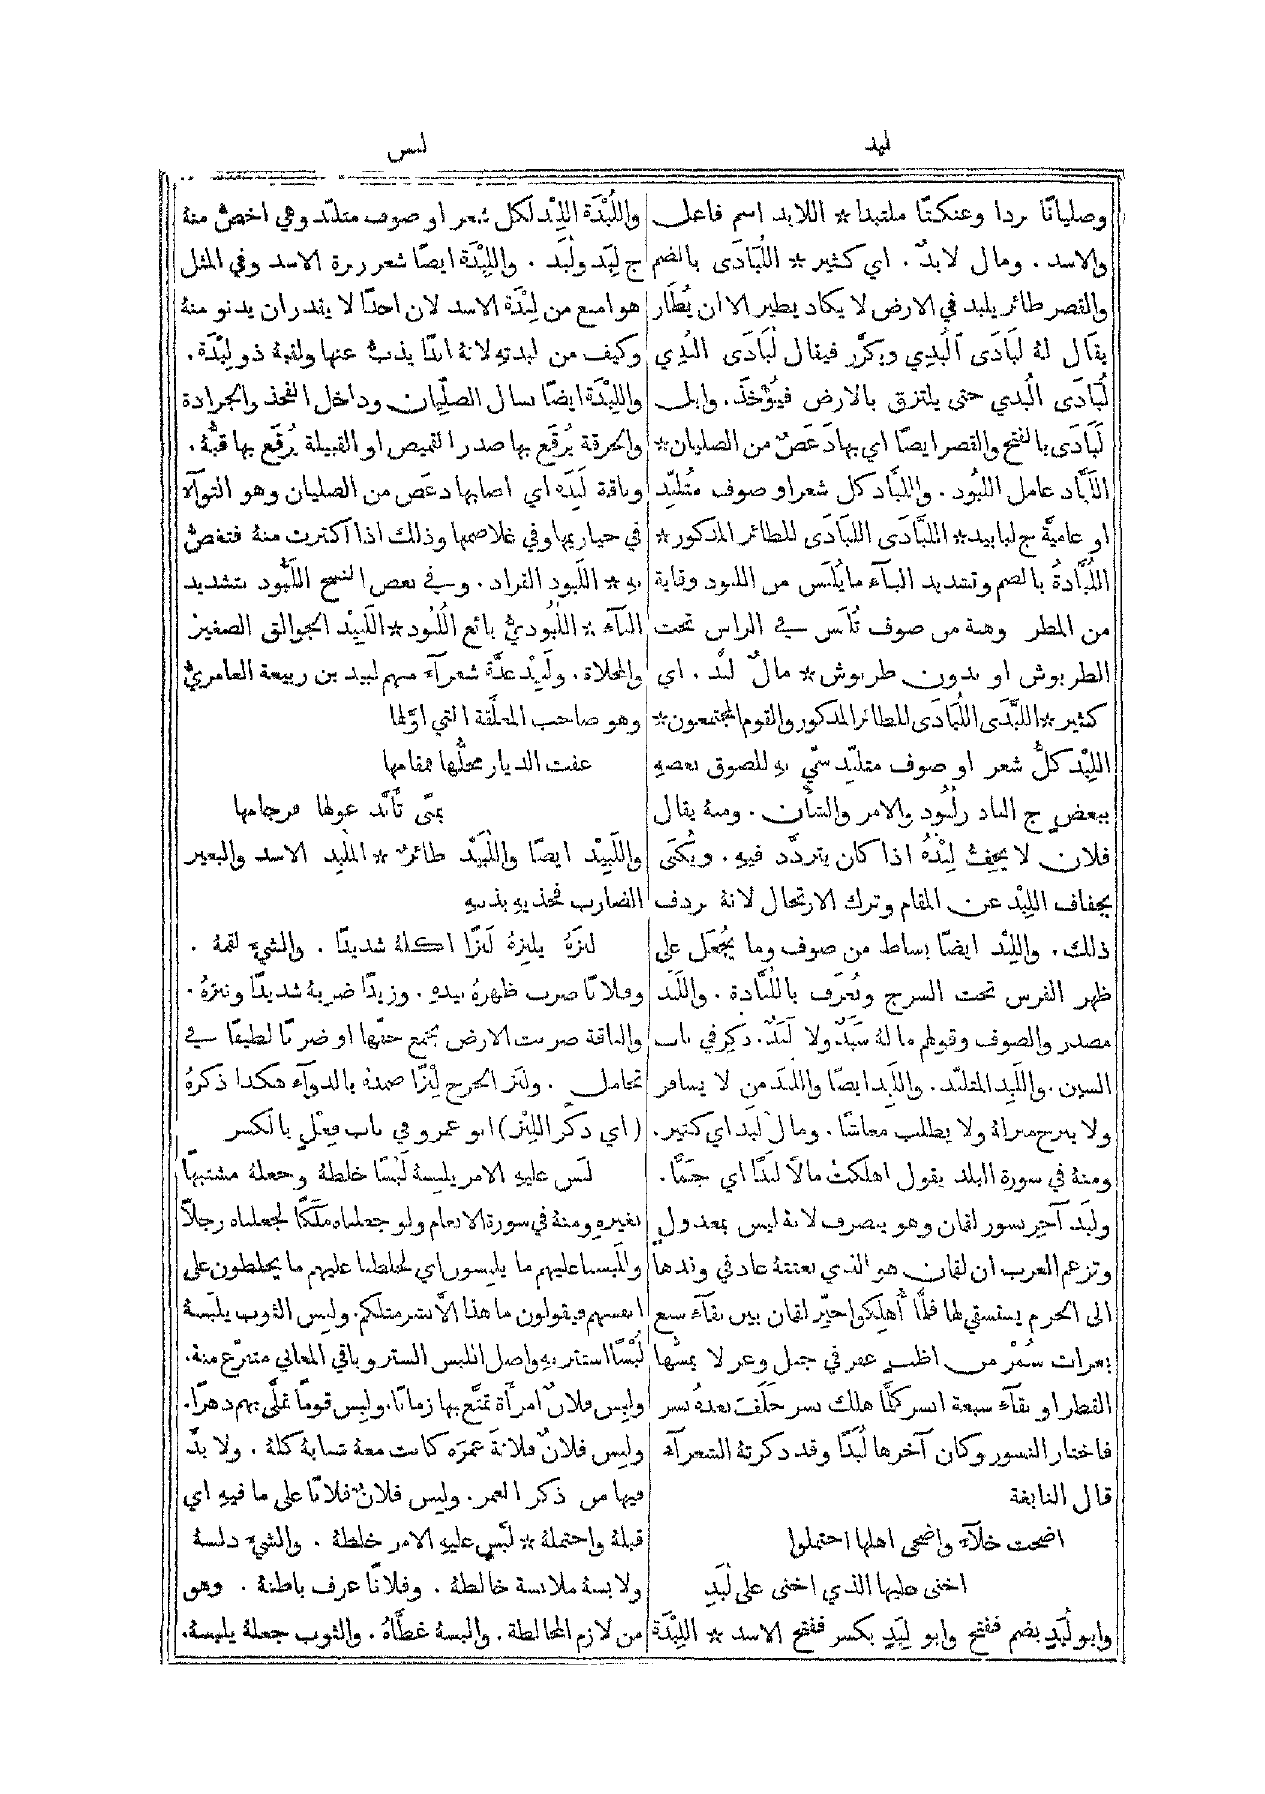 لبد
لبس
وصليانًا بردا وعنكتًا ملتبدا * اللابد اسم فاعل
والاسد . ومال لابدٌ . اي كثير * اللُبَادَى بالضم
والقصر طائر يلبد في الارض لا يكاد يطير الا ان يُطَار
يقال لهُ لبَادَى ٱلبُدِي ويكرَّر فيقال لُبَادَى البُدِي
لُبَادَى البُدي حتى يلتزق بالارض فيُؤْخَذ . وابل
لَبَادَى بالفتح والقصر ايضًا اي بها دَغَصٌ من الصليان *
اللَبَّاد عامل اللبُود . واللبَّاد كل شعر او صوف متُلبِّد
او عاميَّة ج لبابيد * الملبَّادَى اللبَادَى للطائر المذكور *
اللُبَّادةُ بالضم وتشديد البآء ما يُلبَس من اللبود وقاية
من المطر وهنة من صوف تُلبَس في الراس تحت
الطربوش او بدون طربوش * مالٌ لبدٌ . اي
كثير * اللُبَّدَى اللُبَادَى للطائر المذكور والقوم المجتمعون *
اللِبْد كلُّ شعر او صوف متلبّد سمّي بهِ للصوق بعضهِ
ببعضٍ ج الباد ولُبُود والامر والشأن . ومنهُ يقال
فلان لا يجفُّ لِبْدُهُ اذا كان يتردَّد فيهِ . ويُكنَى
بجفاف اللِبْد عن المقام وترك الارتحال لانهُ يردف
ذلك . واللِبْد ايضًا بساط من صوف وما يُجعَل على
ظهر الفرس تحت السرج وتُعرَف باللُبَّادة . واللَبَد
مصدر والصوف وقولهم ما لهُ سَبَدٌ ولا لَبَدٌ . ذُكِر في باب
السين . واللَبِد المتلبّد . واللَبِد ايضًا واللبَد من لا يسافر
ولا يبرح منزلهُ ولا يطلب معاشًا . ومال لُبَد اي كثير .
ومنهُ في سورة البلد يقول اهلكتُ مالًا لبَدًا اي جَمًّا .
ولُبَد آخر نسور لقمان وهو ينصرف لانهُ ليس بمعدولٍ
وتزعم العرب ان لقمان هو الذي بعثتهُ عاد في وفدها
الى الحرم يستسقي لها فلمَّا أُهلِكوا خُيّر لقمان بين بقآء سبع
بعرات سُمْر من اظبٍ عفر في جبل وعر لا يمسّها
القطار او بقآء سبعة انسر كلَّما هلك نسر خَلَفَ بعدهُ نسر
فاختار النسور وكان آخرها لُبَدًا وقد ذكرتهُ الشعرآء
قال النابغة
اضحت خلآء واضحى اهلها احتملوا
اخنى عليها الذي اخنى على لُبَدِ
وابو لُبَدٍ بضم ففتح وابو لِبَدٍ بكسر ففتح الاسد * اللِبْدَة
واللُبْدَة اللِبْد لكل شعر او صوف متلبّد وهي اخصُّ منهُ
ج لِبَد ولُبَد . واللِبْدَة ايضًا شعر زبرة الاسد وفي المثل
هو امنع من لِبْدَة الاسد لان احدًا لا يقدر ان يدنو منهُ
وكيف من لبدتهِ لانهُ ابدًا يذبُّ عنها ولقبهُ ذو لِبْدَة .
واللِبْدَة ايضًا نسال الصلّيان وداخل الفخذ والجرادة
والخرقة يُرقَع بها صدر القميص او القبيلة يُرقَع بها قبُّهُ .
وناقة لَبِدَه اي اصابها دغَص من الصليان وهو التوآء
في حيازيمها وفي غلاصمها وذلك اذا اكثرت منهُ فتغصُّ
بهِ * اللَبود القراد . وفي بعض النسخ اللَبُّود بتشديد
البآء * اللُبُوديُّ بائع اللُبُود * اللَبِيد الجوالق الصغير
والمخلاة . ولَبِيْد عدَّة شعرآء منهم لبيد بن ربيعة العامريُّ
وهو صاحب المعلَّقة التي اوَّلها
عفت الديار محلُّها فمقامها
بمنًى تأَبَّد غولها فرجامها
واللَبِيْد ايضًا واللُبَيْد طائرٌ * المُلبِد الاسد والبعير
الضارب فخذيهِ بذنبهِ
لبزَهُ يلبِزهُ لَبْزًا اكلهُ شديدًا . والشيَ لقمهُ .
وفلانًا ضرب ظهرهُ بيدهِ . وزيدًا ضربهُ شديدًا ونبزهُ .
والناقة ضربت الارض بجمع خفّها او ضربًا لطيفًا في
تحامل . ولبز الجرح لَبْزًا ضمدهُ بالدوآء هكذا ذكرهُ
( اي ذكر اللِبْز ) ابو عمرو في باب فِعْلٍ بالكسر
لبَس عليهِ الامر يلبِسهُ لَبْسًا خلطهُ وجعلهُ مشتبهًا
بغيرهِ ومنهُ في سورة الانعام ولو جعلناه مَلَكًا لجعلناه رجلًا
وللَبَسنا عليهم ما يلبسون اي لخلطنا عليهم ما يخلطون على
انفسهم فيقولون ما هذا الَّا بشر مثلكم . ولبِس الثوب يلبَسهُ
لُبْسًا استتر بهِ واصل اللبس الستر وباقي المعاني متفرّع منهُ .
ولبِس فلانٌ امرأَة تمتَّع بها زمانًا . ولبِس قومًا تملَّى بهم دهرًا .
ولبِس فلانٌ فلانةَ عمرَه كانت معهُ شبابهُ كلهُ . ولا بدَّ
فيها من ذكر العمر . ولبس فلانٌ فلانًا على ما فيهِ اي
قبلهُ واحتملهُ * لبَّس عليهِ الامر خلطهُ . والشيَ دلسهُ
ولابسهُ ملابسة خالطهُ . وفلانًا عرف باطنهُ . وهو
من لازم المخالطة . والبسهُ غطَّاهُ . والثوب جعلهُ يلبسهُ .